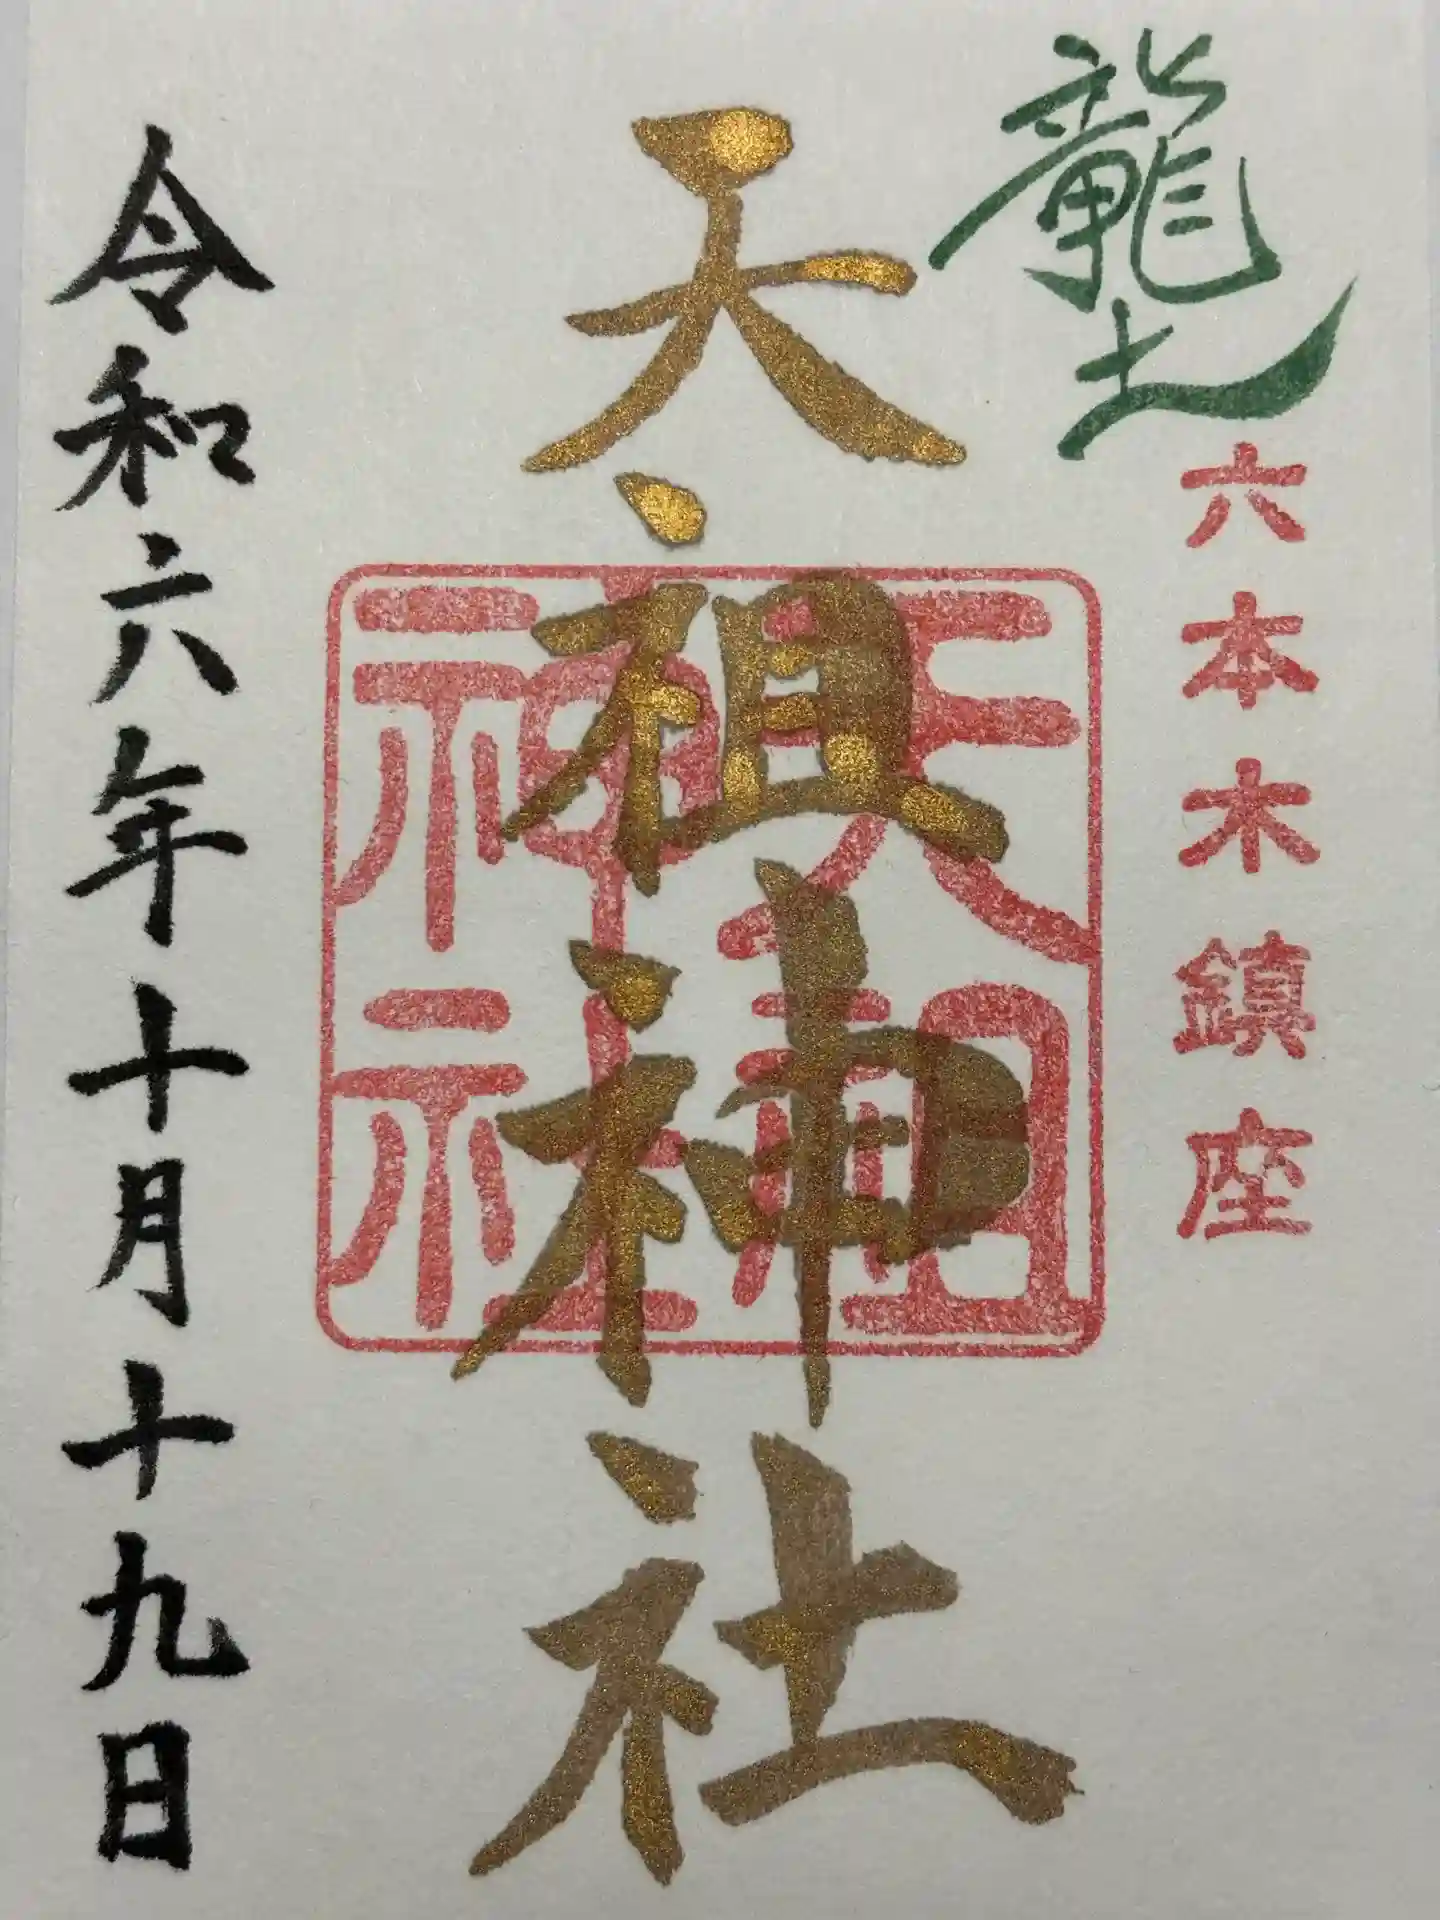 龍土
六本木鎮座
天祖神社
天祖神社
令和六年十月十九日